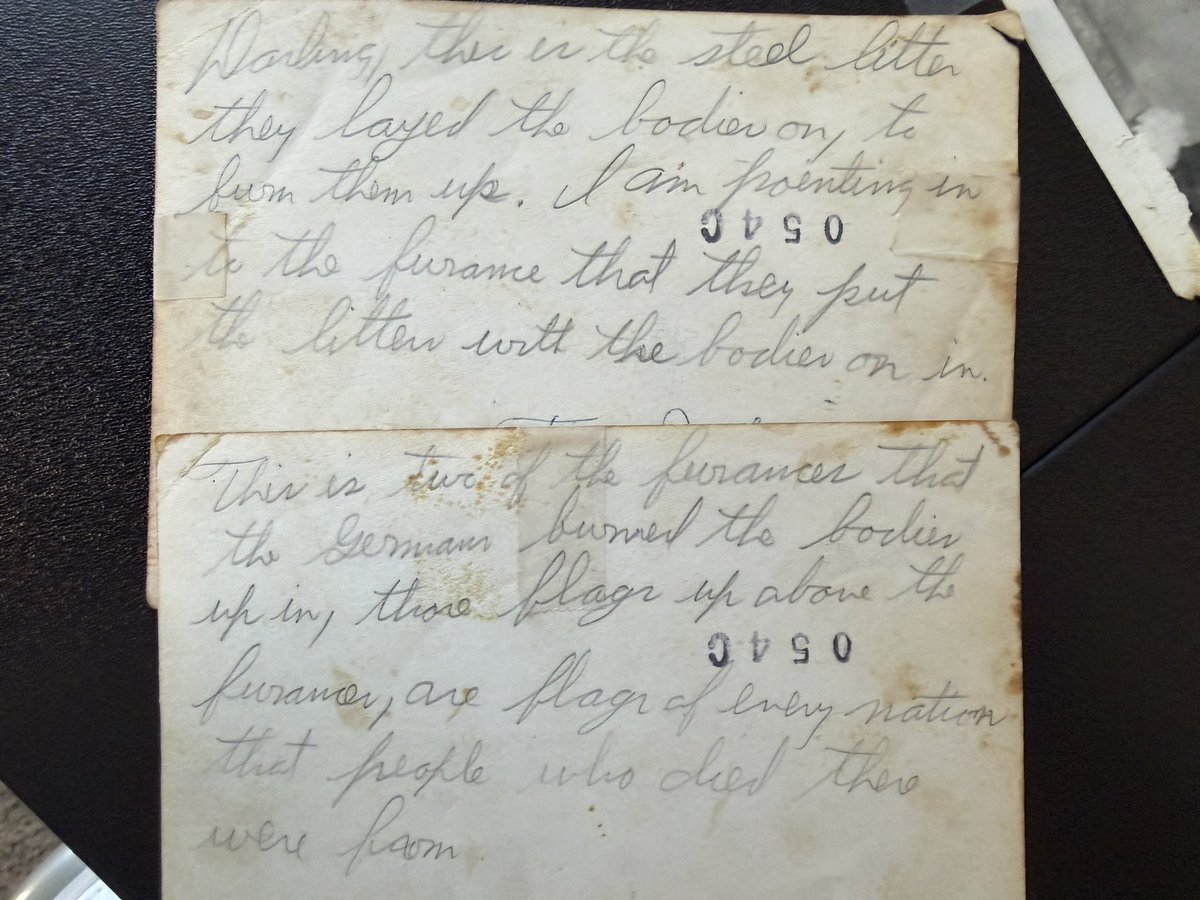 Darling, this is the steel litter
they layed the bodies on, to
burn them up. I am poenting in
054C
to the furance that they put
the litters with the bodies on in.
This is two of the furances that
the Germans burned the bodies
up in, those flags up above the
054C
furances, are flags of every nation
that people who died there
were from